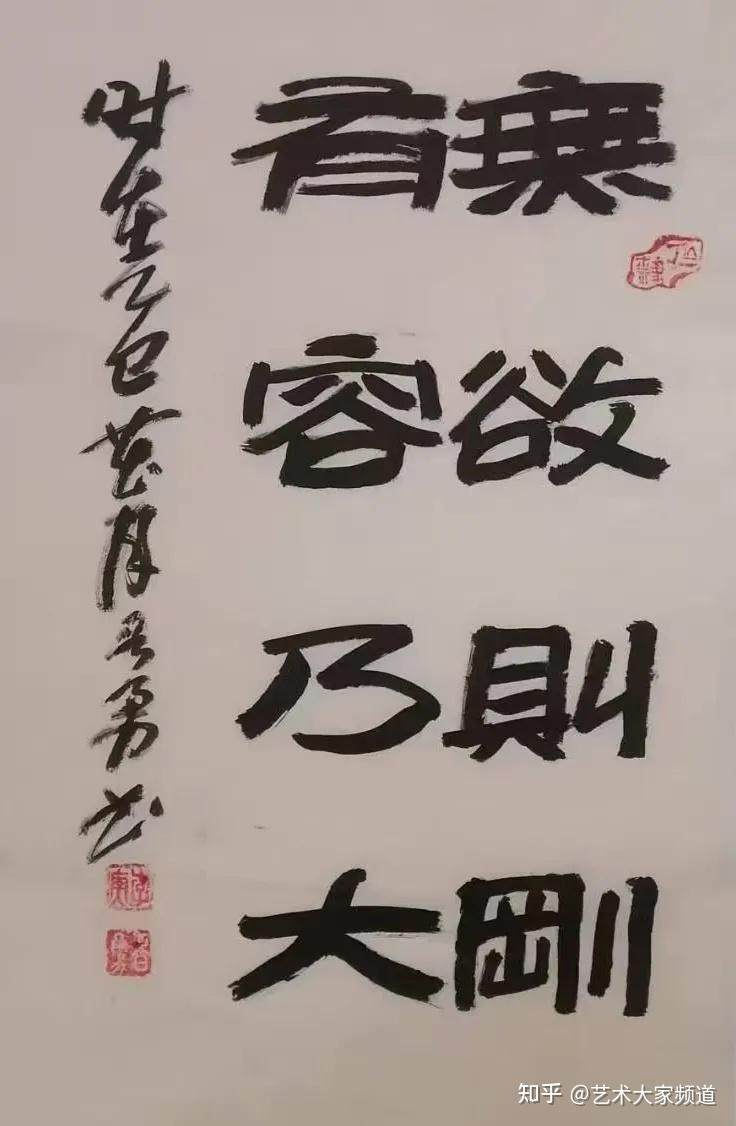 無欲則剛
有容乃大
时在乙巳花月勇书
知乎 @艺术大家频道